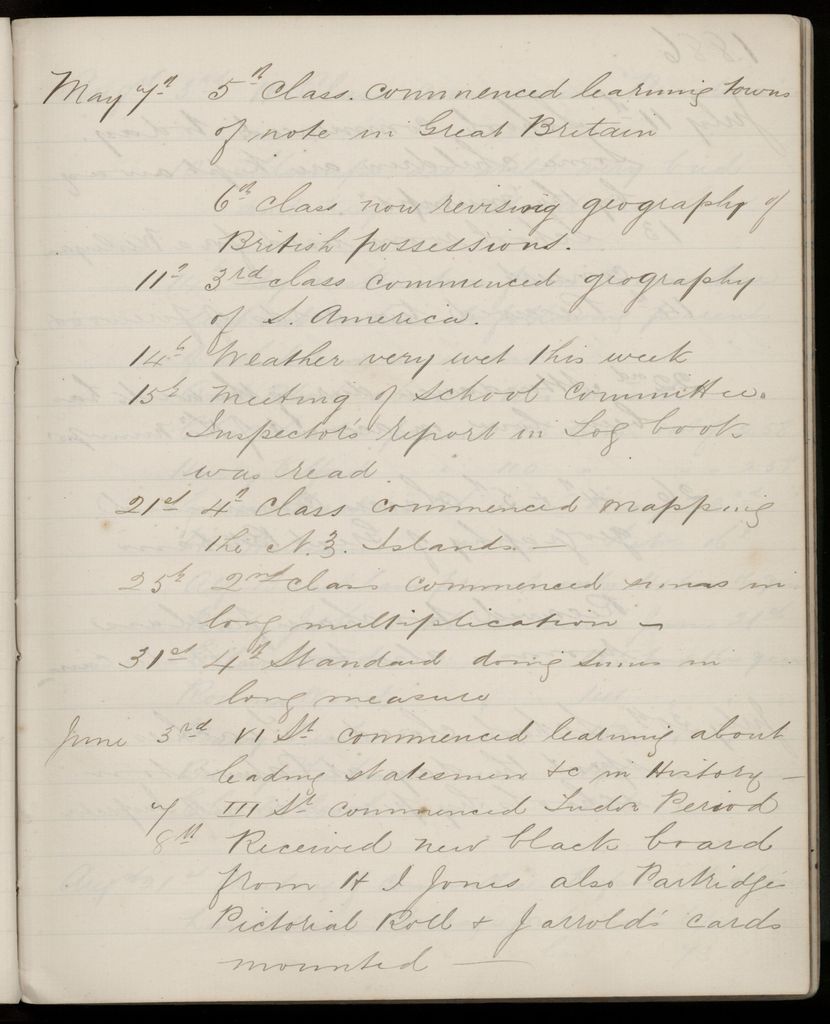 May 7th 5th Class. commenced learning towns
of note in Great Britain
6th Class now revising geography of
British possessions.
11th 3rd class commenced geography
of S. America.
14th Weather very wet this week
15th Meeting of School Committee.
Inspectors report in Log book
was read
21st 4th Class commenced mapping
the N.Z. Islands. —
25th 2nd class commenced sums in
long multiplication —
31st 4th Standard doing sums in
long measure
June 3rd VI St commenced learning about
leading statesmen &c in History —
7 III St commenced Tudor Period
8th Received new black board
from H I Jones also Partridge's
Pictorial Roll & Jarrold's cards
mounted —